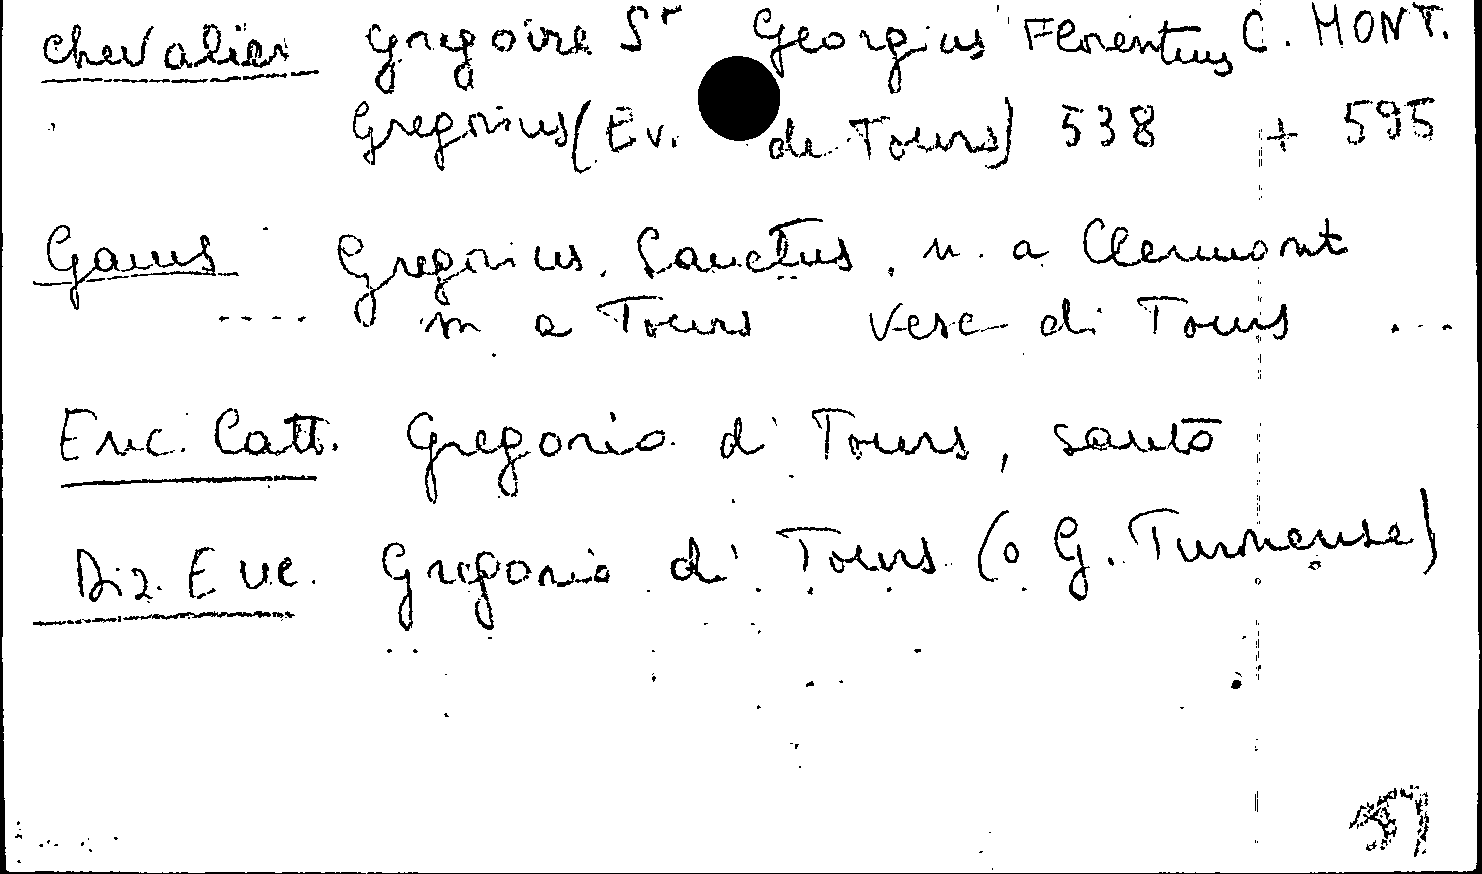 Chevalier Gregoire St Georgius Florentius C. MONT.
Gregorius (Ev. de Tours) 538 + 595
Gams Gregorius, Sanctus, n. a Clermont
.... m a Tours Vesc di Tours ...
Enc. Catt. Gregorio di Tours, santo
Diz. Enc. Gregorio di Tours (o G. Turonense)